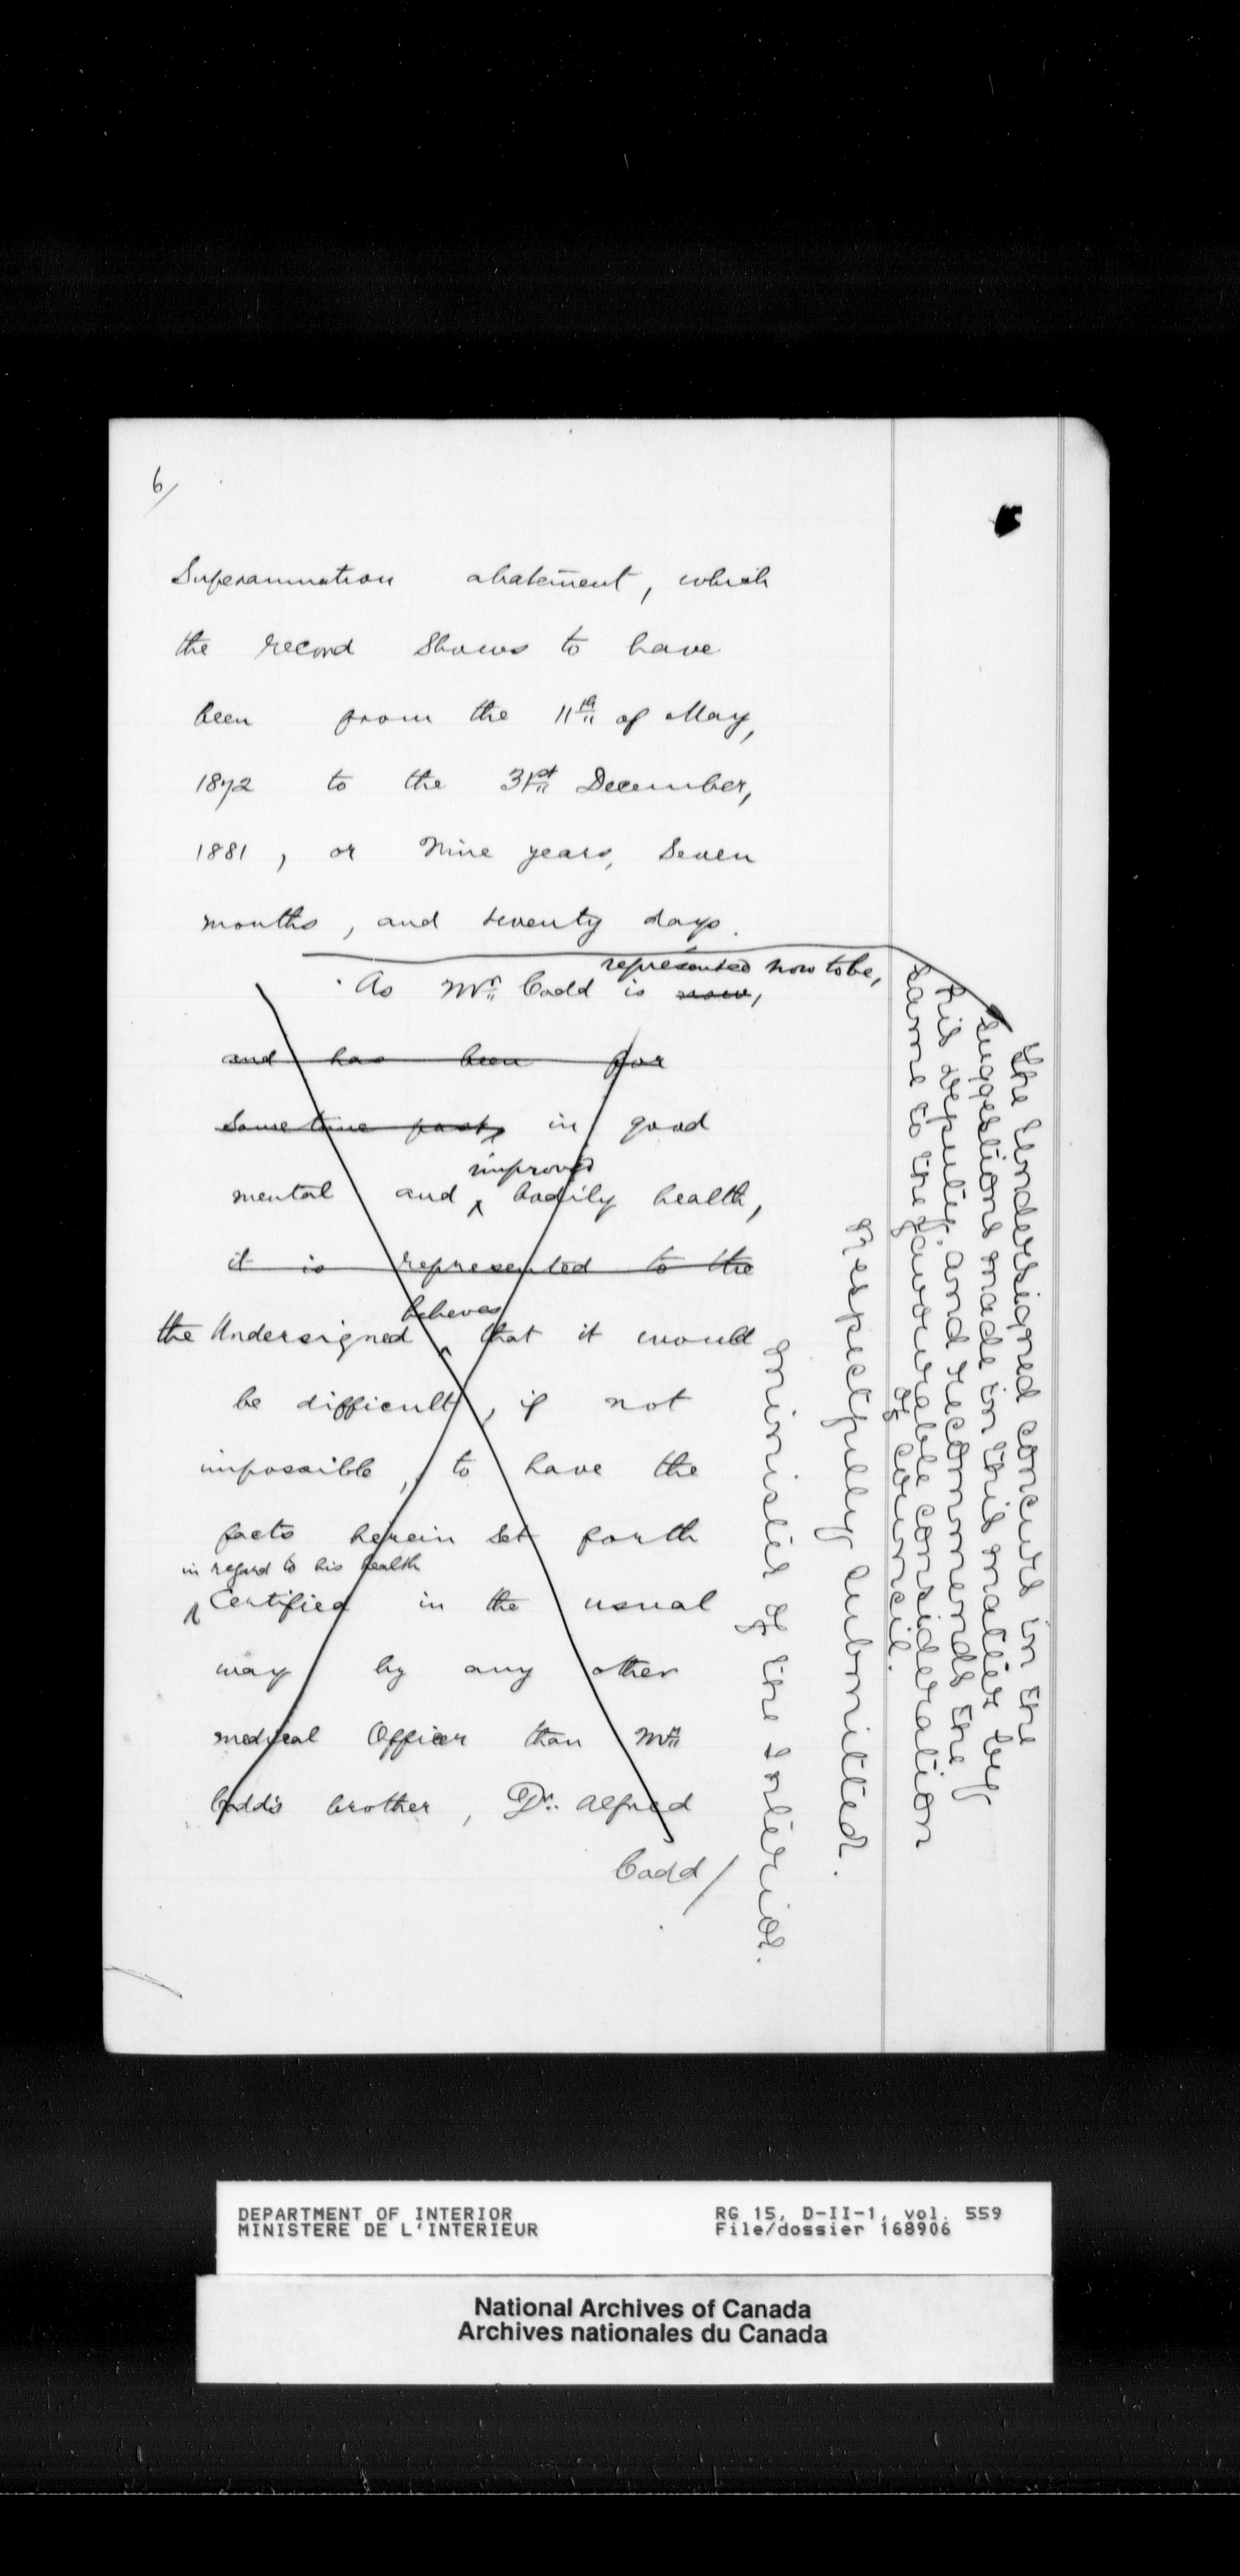 6/
Superannuation abatement, which
the record shows to have
been from the 11th of May,
1872 to the 31st December,
1881, or nine years, seven
months, and twenty days.
represented now to be,
As Mr. Codd is now,
and has been for
some time past, in good
improved
mental and bodily health,
it is represented to the
believes
the Undersigned that it would
be difficult, if not
impossible, to have the
facts herein set forth
in regard to his health
Certified in the usual
way by any other
medical Officer than Mr.
Codd's brother, Dr. Alfred
Codd/
The Undersigned concurs in the
suggestions made in this matter by
his deputy, and recommends the
same to the favourable consideration
of Council.
Respectfully submitted.
Minister of the Interior.
DEPARTMENT OF INTERIOR
MINISTERE DE L'INTERIEUR
RG 15, D-II-1, vol. 559
File/dossier 168906
National Archives of Canada
Archives nationales du Canada